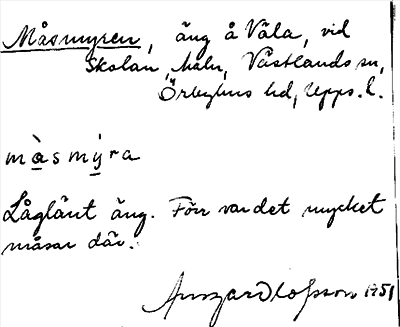 Måsmyren, äng å Väla, vid
Skolan, Västlands sn,
Örbyhus hd, Upps. l.
màsmýra
Låglänt äng. Förr var det mycket
måsar där.
Olofsson 1951